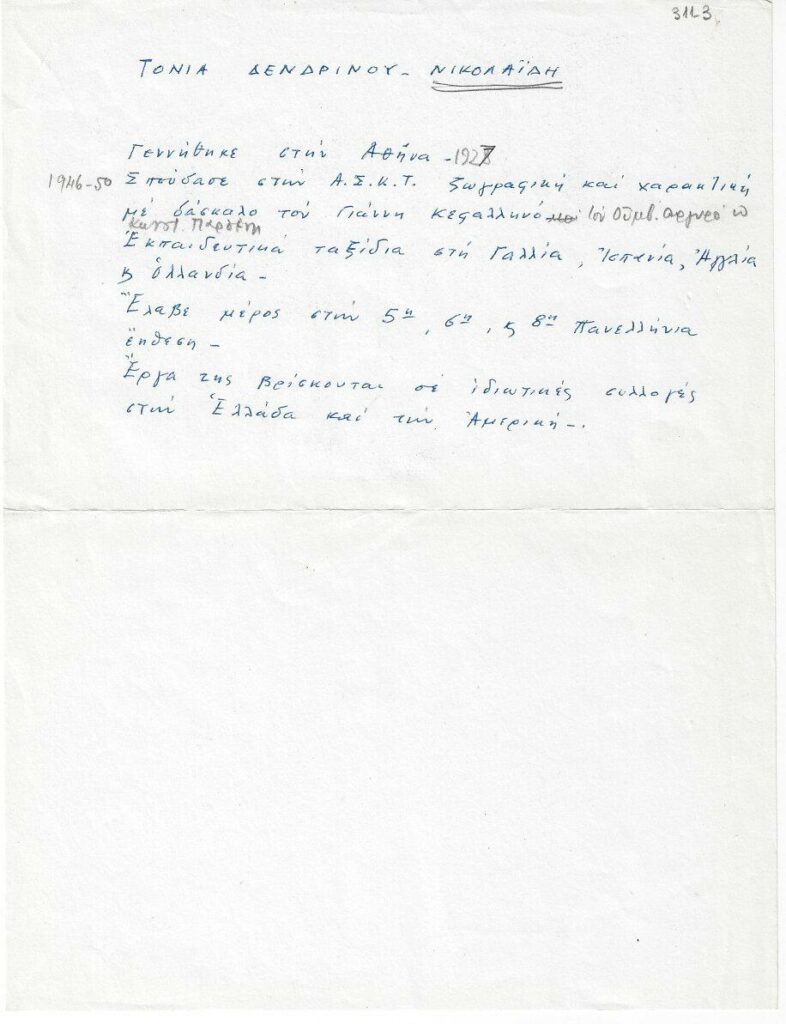 3113
ΤΟΝΙΑ ΔΕΝΔΡΙΝΟΥ - ΝΙΚΟΛΑΪΔΗ
Γεννήθηκε στήν Αθήνα - 1927
1946-50 Σπούδασε στήν Α.Σ.Κ.Τ. ζωγραφική καί χαρακτική
μέ δάσκαλο τόν Γιάννη Κεφαλληνό καί τον Ουμβ. Αργυρό
Κωνστ. Παρθένη
Ἐκπαιδευτικά ταξίδια στή Γαλλία, Ἱσπανία, Ἀγγλία
κ Ὁλλανδία -
Ἔλαβε μέρος στήν 5η, 6η, κ 8η Πανελλήνια
ἔκθεση -
Ἔργα της βρίσκονται σέ ἰδιωτικές συλλογές
στήν Ἑλλάδα καί τήν Ἀμερική -.